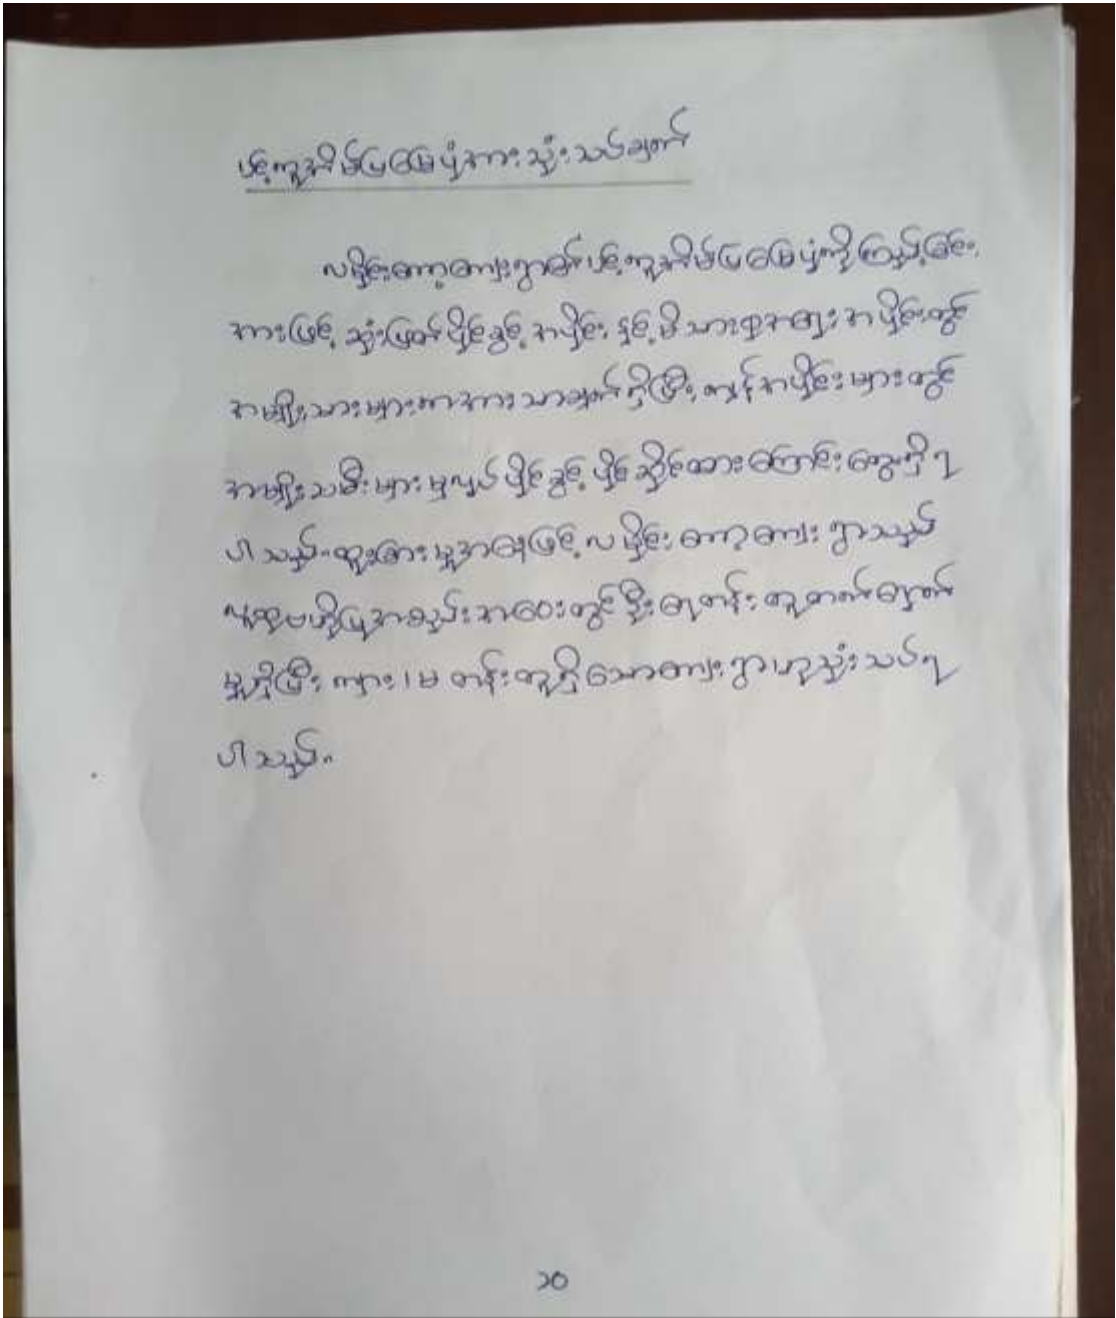 ပင့်ကူအိမ်ပြမြေပုံအားသုံးသပ်ချက်
လဖိုင်းကော့ကျေးရွာ၏ပင့်ကူအိမ်ပြမြေပုံကိုကြည့်ခြင်း
အားဖြင့် ဆုံးဖြတ်ပိုင်ခွင့် အပိုင်း နှင့် မိသားစုအရေး အပိုင်းတွင်
အမျိုးသားများကအားသာချက်ရှိပြီး ကျန်အပိုင်းများတွင်
အမျိုးသမီးများမှလုပ်ပိုင်ခွင့် ပိုင်ဆိုင်ထားကြောင်းတွေ့ရှိရ
ပါသည်။ထူးခြားမှုအနေဖြင့် လဖိုင်းကော့ကျေးရွာသည်
လူမှုဗဟိုပြုအစည်းအဝေးတွင် ဦးရေတန်းတူတက်ရောက်
မှုရှိပြီး ကျား၊မ တန်းတူရှိသောကျေးရွာဟုသုံးသပ်ရ
ပါသည်။
၁၀